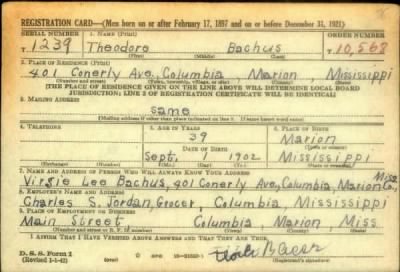 REGISTRATION CARD—(Men born on or after February 17, 1897 and on or before December 31, 1921)
SERIAL NUMBER 1. NAME (Print) ORDER NUMBER
T 1239 Theodore Bachus T 10,568
(First) (Middle) (Last)
2. PLACE OF RESIDENCE (Print)
401 Conerly Ave, Columbia, Marion, Mississippi
(Number and street) (Town, township, village, or city) (County) (State)
[THE PLACE OF RESIDENCE GIVEN ON THE LINE ABOVE WILL DETERMINE LOCAL BOARD
JURISDICTION; LINE 2 OF REGISTRATION CERTIFICATE WILL BE IDENTICAL]
3. MAILING ADDRESS
same
(Mailing address if other than place indicated on line 2. If same insert word same)
4. TELEPHONE 5. AGE IN YEARS 6. PLACE OF BIRTH
39 Marion
DATE OF BIRTH (Town or county)
Sept. 1902 Mississippi
(Exchange) (Number) (Mo.) (Day) (Yr.) (State or country)
7. NAME AND ADDRESS OF PERSON WHO WILL ALWAYS KNOW YOUR ADDRESS Miss.
Virgie Lee Bachus, 401 Conerly Ave, Columbia, Marion Co.,
8. EMPLOYER'S NAME AND ADDRESS
Charles S. Jordan, Grocer, Columbia, Mississippi
9. PLACE OF EMPLOYMENT OR BUSINESS
Main Street Columbia, Marion, Miss
(Number and street or R. F. D. number) (Town) (County) (State)
I AFFIRM THAT I HAVE VERIFIED ABOVE ANSWERS AND THAT THEY ARE TRUE.
D. S. S. Form 1
(Revised 1-1-42) (over)